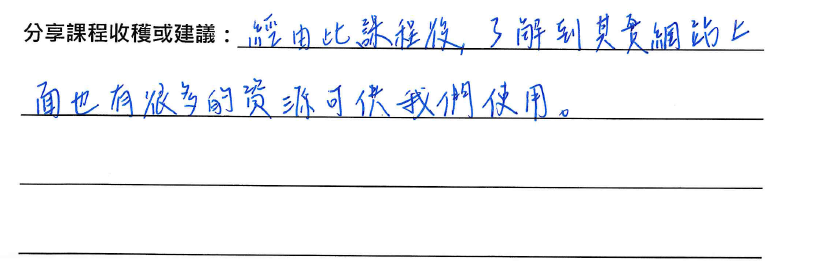 分享課程收穫或建議：經由此課程後,了解到其實網站上
面也有很多的資源可供我們使用。